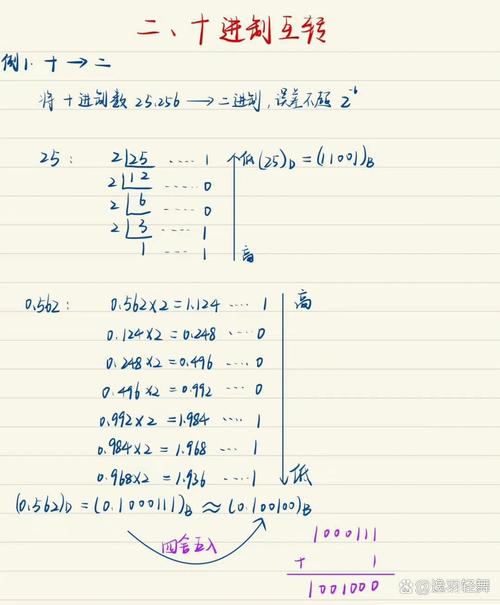 二、十进制互转
例1. 十→二
将十进制数 25.256 → 二进制, 误差不超 2^-6
25: 2|25 ····· 1 低 (25)D = (11001)B
2|12 ····· 0
2|6 ····· 0
2|3 ····· 1
1 ····· 1 高
0.562: 0.562×2=1.124 ···· 1 高
0.124×2=0.248 ···· 0
0.248×2=0.496 ···· 0
0.496×2=0.992 ···· 0
0.992×2=1.984 ···· 1
0.984×2=1.968 ···· 1
0.968×2=1.936 ···· 1 低
(0.562)D=(0.1000111)B≈(0.100100)B
四舍五入
1000111
+ 1
1001000
@逸羽轻舞